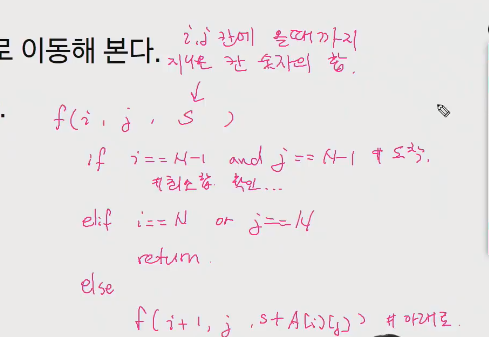 로 이동해 본다.
i,j 칸에 올때까지
지나온 칸 숫자의 합.
↓
f(i, j, s )
if i==N-1 and j==N-1 #도착.
#최소합 확인...
elif i==N or j==N
return.
else
f(i+1, j, s+A[i][j]) #아래로.